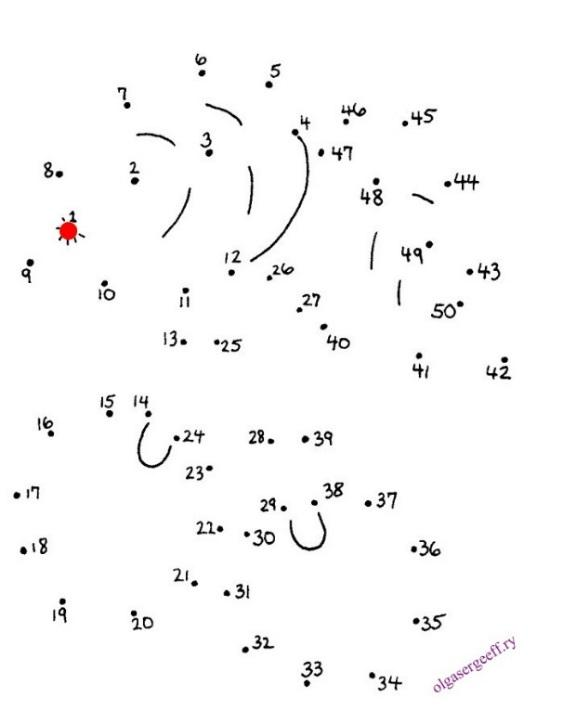 6
5
7
46
45
4
3
47
8
2
44
48
1
49
12
26
43
9
10
11
27
50
13
25
40
41
42
15
14
16
24
28
39
23
17
29
38
37
22
30
18
36
21
31
19
20
35
32
33
34
olgasergeeff.ry